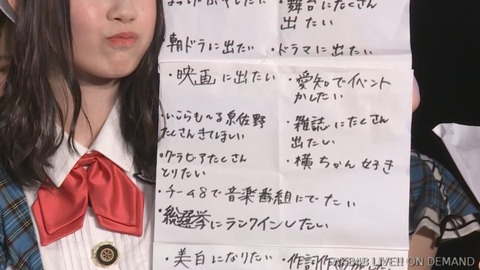 ・舞台にたくさん
出たい
朝ドラに出たい
・ドラマに出たい
・映画に出たい
・愛知でイベント
かしたい
・いこらも〜る泉佐野
たくさんきてほしい
・雑誌にたくさん
出たい
・グラビアたくさん
とりたい
・横ちゃん好き
・チーム8で音楽番組にでたい
・総選挙にランクインしたい
・美白になりたい
・作詞作
LIVE!! ON DEMAND